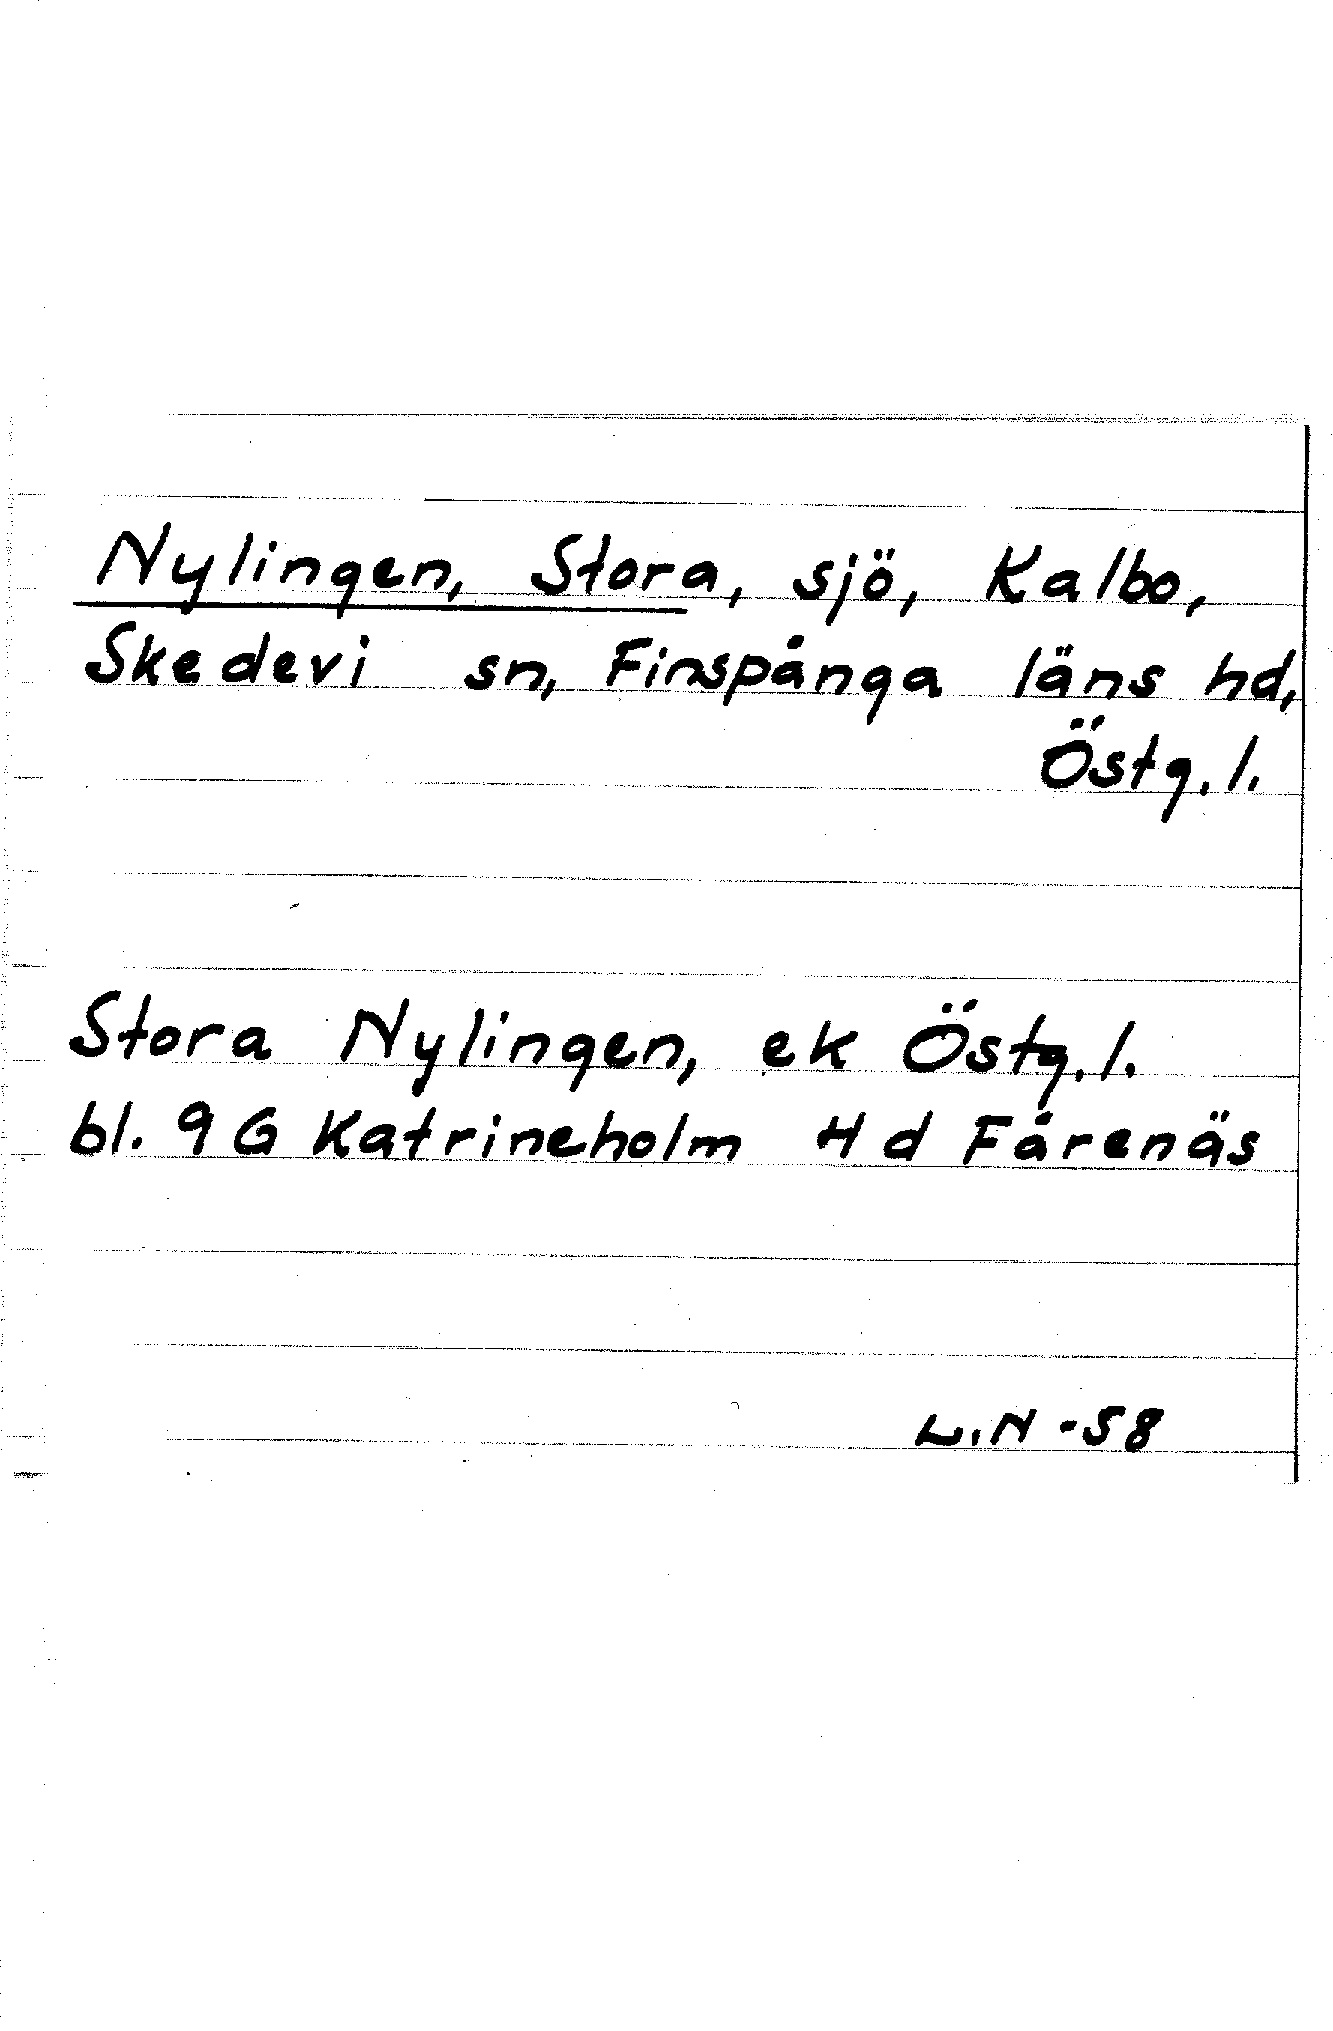 Nylingen, Stora, sjö, Kalbo,
Skedevi sn, Finspånga läns hd,
Östg. l.
Stora Nylingen, ek Östg. l.
bl. 9 G Katrineholm H d Fårenäs
L.N -58